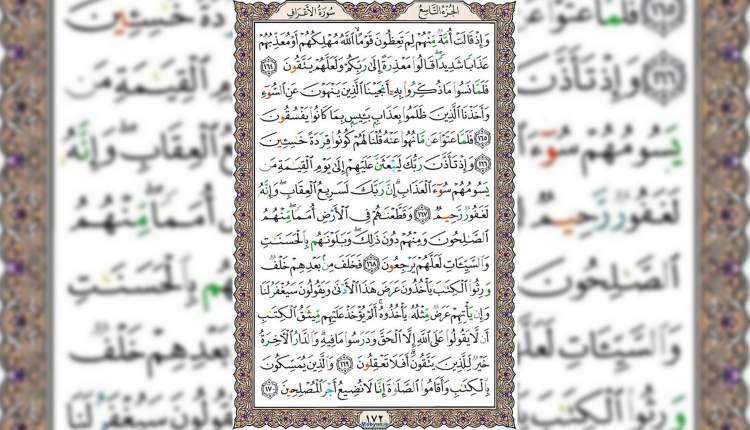 الجزء التاسع سورة الأعراف
وَإِذْ قَالَتْ أُمَّةٌ مِّنْهُمْ لِمَ تَعِظُونَ قَوْمًا ٱللَّهُ مُهْلِكُهُمْ أَوْ مُعَذِّبُهُمْ
عَذَابًا شَدِيدًا قَالُوا۟ مَعْذِرَةً إِلَىٰ رَبِّكُمْ وَلَعَلَّهُمْ يَتَّقُونَ ١٦٤
فَلَمَّا نَسُوا۟ مَا ذُكِّرُوا۟ بِهِۦٓ أَنجَيْنَا ٱلَّذِينَ يَنْهَوْنَ عَنِ ٱلسُّوٓءِ
وَأَخَذْنَا ٱلَّذِينَ ظَلَمُوا۟ بِعَذَابٍۭ بَـِٔيسٍۭ بِمَا كَانُوا۟ يَفْسُقُونَ
١٦٥ فَلَمَّا عَتَوْا۟ عَن مَّا نُهُوا۟ عَنْهُ قُلْنَا لَهُمْ كُونُوا۟ قِرَدَةً خَـٰسِـِٔينَ
١٦٦ وَإِذْ تَأَذَّنَ رَبُّكَ لَيَبْعَثَنَّ عَلَيْهِمْ إِلَىٰ يَوْمِ ٱلْقِيَـٰمَةِ مَن
يَسُومُهُمْ سُوٓءَ ٱلْعَذَابِ إِنَّ رَبَّكَ لَسَرِيعُ ٱلْعِقَابِ وَإِنَّهُۥ
لَغَفُورٌ رَّحِيمٌ ١٦٧ وَقَطَّعْنَـٰهُمْ فِى ٱلْأَرْضِ أُمَمًا مِّنْهُمُ
ٱلصَّـٰلِحُونَ وَمِنْهُمْ دُونَ ذَٰلِكَ وَبَلَوْنَـٰهُم بِٱلْحَسَنَـٰتِ
وَٱلسَّيِّـَٔاتِ لَعَلَّهُمْ يَرْجِعُونَ ١٦٨ فَخَلَفَ مِنۢ بَعْدِهِمْ خَلْفٌ
وَرِثُوا۟ ٱلْكِتَـٰبَ يَأْخُذُونَ عَرَضَ هَـٰذَا ٱلْأَدْنَىٰ وَيَقُولُونَ سَيُغْفَرُ لَنَا
وَإِن يَأْتِهِمْ عَرَضٌ مِّثْلُهُۥ يَأْخُذُوهُ أَلَمْ يُؤْخَذْ عَلَيْهِم مِّيثَـٰقُ ٱلْكِتَـٰبِ
أَن لَّا يَقُولُوا۟ عَلَى ٱللَّهِ إِلَّا ٱلْحَقَّ وَدَرَسُوا۟ مَا فِيهِ وَٱلدَّارُ ٱلْـَٔاخِرَةُ
خَيْرٌ لِّلَّذِينَ يَتَّقُونَ أَفَلَا تَعْقِلُونَ ١٦٩ وَٱلَّذِينَ يُمَسِّكُونَ
بِٱلْكِتَـٰبِ وَأَقَامُوا۟ ٱلصَّلَوٰةَ إِنَّا لَا نُضِيعُ أَجْرَ ٱلْمُصْلِحِينَ ١٧٠
١٧٢